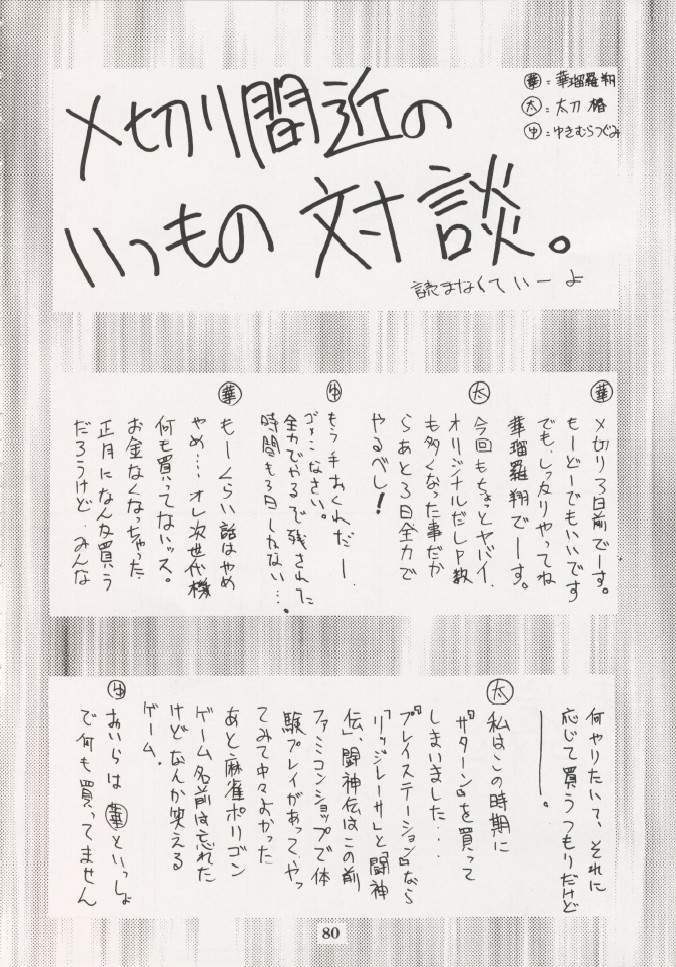 〆切り間近の
いつもの対談。
読まなくていーよ
華=華瑠羅翔
太=太刀椿
ゆ=ゆきむらつぐみ
華
〆切り3日前でーす。
もーどーでもいいです
でも、しっかりやってね
華瑠羅翔でーす。
太
今回もちょっとヤバイ、
オリジナルだしP数
も多くなった事だか
らあと3日全力で
やるべし!
ゆ
もう手おくれだー、
ゴメンなさい。
全力でやるで残された
時間も3日しかない…。
華
もーくらい話はやめ
やめ…オレ次世代機
何も買ってないッス。
お金なくなっちゃった
正月になんか買う
だろうけど、みんな
何やりたいて、それに
応じて買うつもりだけど
――。
太
私はこの時期に
『サターン』を買って
しまいました…
『プレイステーション』なら
「リッジレーサー」と「闘神
伝」、闘神伝はこの前
ファミコンショップで体
験プレイがあって、やっ
てみて中々よかった
あと麻雀ポリゴン
ゲーム名前は忘れた
けどなんか笑える
ゲーム。
ゆ
おいらは華といっしょ
で何も買ってません
80